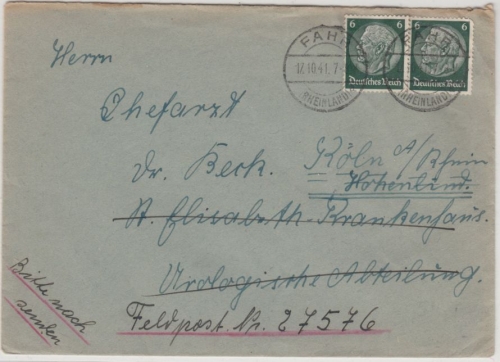 6 6
Deutsches Reich Deutsches Reich
FAHR
17.10.41.7
(RHEINLAND) (RHEINLAND)
Herrn
Chefarzt
Dr. Beck.
Köln a/Rhein
Hohenlind.
St. Elisabeth-Krankenhaus.
Urologische Abteilung.
Bitte nach
senden
Feldpost. Nr. 27576